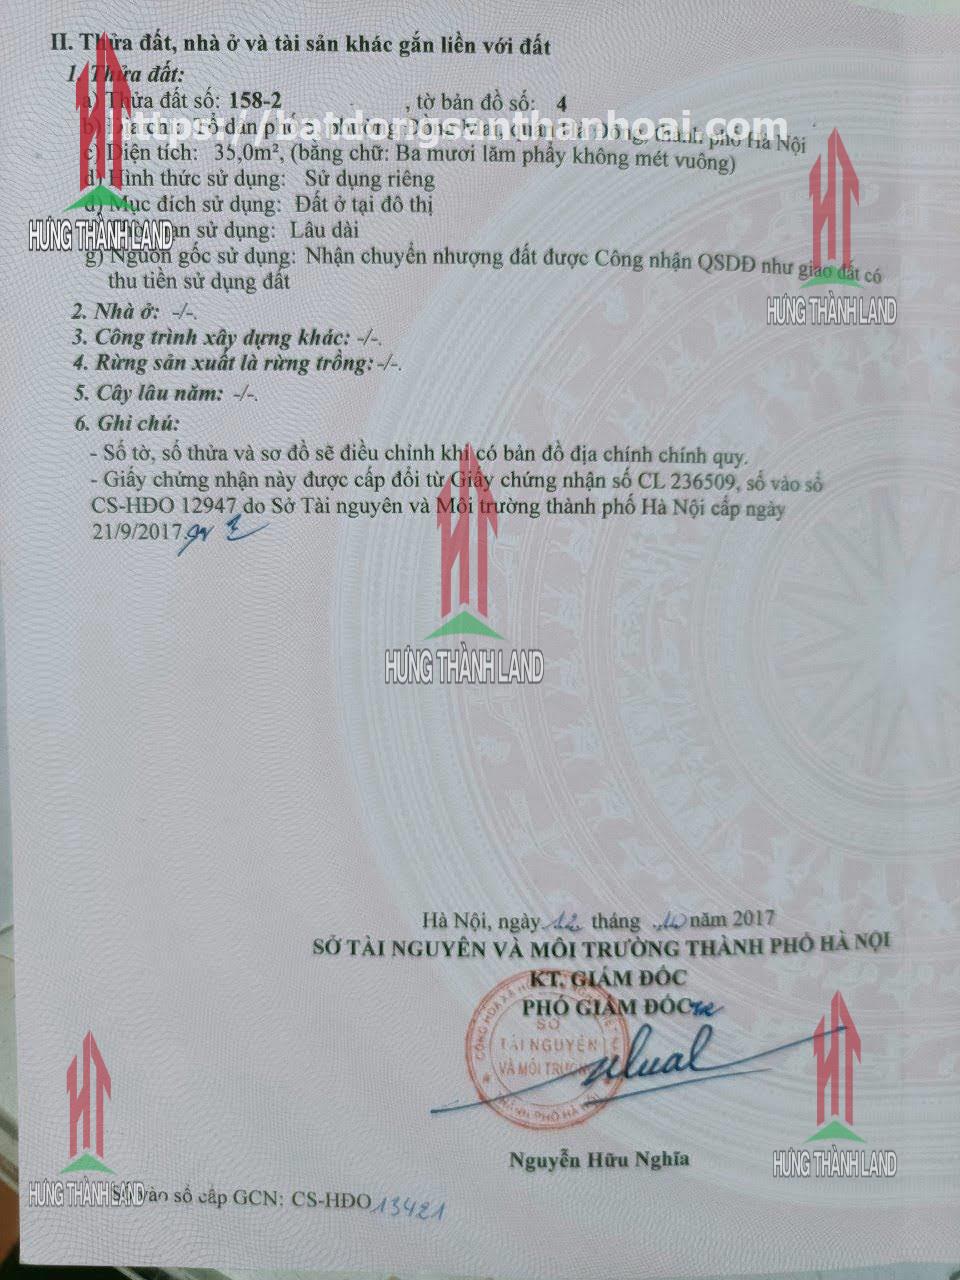 II. Thửa đất, nhà ở và tài sản khác gắn liền với đất
1. Thửa đất:
a) Thửa đất số: 158-2 , tờ bản đồ số: 4
https://batdongsanthanhoai.com
b) Địa chỉ: phường Đồng Mai, quận Hà Đông, thành phố Hà Nội
c) Diện tích: 35,0m², (bằng chữ: Ba mươi lăm phẩy không mét vuông)
d) Hình thức sử dụng: Sử dụng riêng
đ) Mục đích sử dụng: Đất ở tại đô thị
hạn sử dụng: Lâu dài
HƯNG THÀNH LAND
g) Nguồn gốc sử dụng: Nhận chuyển nhượng đất được Công nhận QSDĐ như giao đất có
thu tiền sử dụng đất
HƯNG THÀNH LAND
2. Nhà ở: -/-.
3. Công trình xây dựng khác: -/-.
4. Rừng sản xuất là rừng trồng: -/-.
5. Cây lâu năm: -/-.
6. Ghi chú:
- Số tờ, số thửa và sơ đồ sẽ điều chỉnh khi có bản đồ địa chính chính quy.
- Giấy chứng nhận này được cấp đổi từ Giấy chứng nhận số CL 236509, số vào sổ
CS-HĐO 12947 do Sở Tài nguyên và Môi trường thành phố Hà Nội cấp ngày
21/9/2017.
HƯNG THÀNH LAND
Hà Nội, ngày 12 tháng 10 năm 2017
SỞ TÀI NGUYÊN VÀ MÔI TRƯỜNG THÀNH PHỐ HÀ NỘI
KT. GIÁM ĐỐC
PHÓ GIÁM ĐỐC
SỞ
TÀI NGUYÊN
VÀ MÔI TRƯỜNG
THÀNH PHỐ HÀ NỘI
Nguyễn Hữu Nghĩa
HƯNG THÀNH LAND
HƯNG THÀNH LAND
Số vào sổ cấp GCN: CS-HĐO 13421